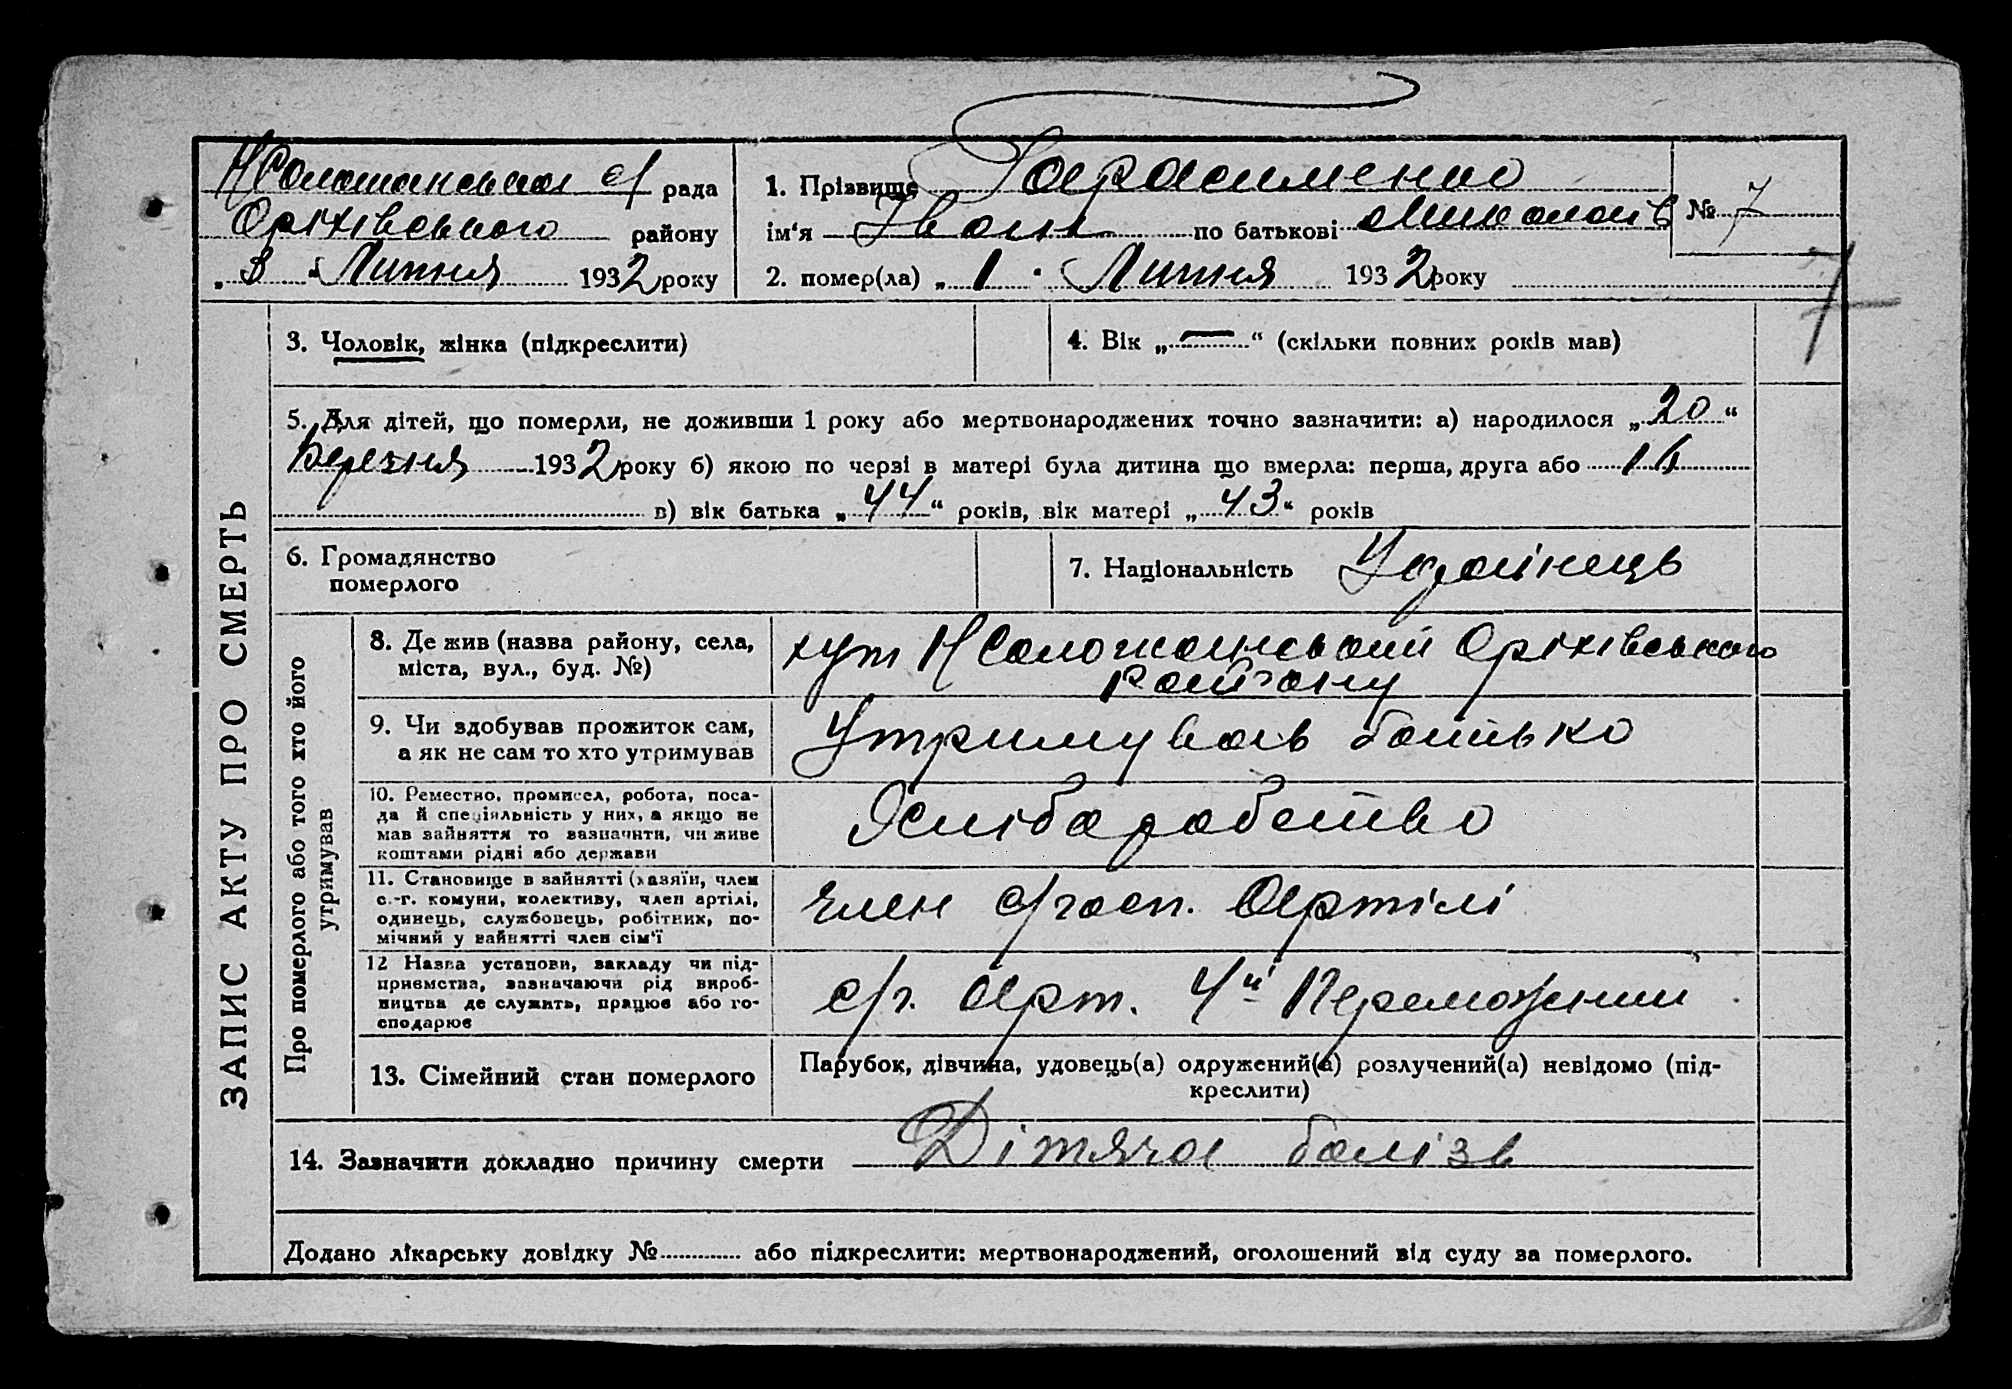 НСоложанська с/ рада
Оріхівського району
„ 3 “ Липня 1932 року
1. Прізвище Гарасименко
ім'я Іван по батькові Миколаїв
2. помер(ла) „ 1 “ Липня 1932 року
№ 7
7
3. Чоловік, жінка (підкреслити)
4. Вік „ — “ (скільки повних років мав)
5. Для дітей, що померли, не доживши 1 року або мертвонароджених точно зазначити: а) народилося „ 20 “
Березня 1932 року б) якою по черзі в матері була дитина що вмерла: перша, друга або
в) вік батька „ 44 “ років, вік матері „ 43 “ років
6. Громадянство
померлого
7. Національність Украінець
ЗАПИС АКТУ ПРО СМЕРТЬ
Про померлого або того хто його
утримував
8. Де жив (назва району, села,
міста, вул., буд. №)
хут НСоложанський Оріхівського
Району
9. Чи здобував прожиток сам,
а як не сам то хто утримував
Утримував батько
10. Ремество, промисел, робота, поса-
да й спеціяльність у них, а якщо не
мав зайняття то зазначити, чи живе
коштами рідні або держави
Хліборобство
11. Становище в зайнятті (хазяїн, член
с.-г. комуни, колективу, член артілі,
одинець, службовець, робітник, по-
мічний у зайнятті член сім'ї
член с/госп. Артілі
12 Назва установи, закладу чи під-
приємства, зазначаючи рід вироб-
ництва де служить, працює або го-
сподарює
с/г. Арт. 4й Переможний
13. Сімейний стан померлого
Парубок, дівчина, удовець(а) одружений(а) розлучений(а) невідомо (під-
креслити)
14. Зазначити докладно причину смерти Дітяча болізв
Додано лікарську довідку № або підкреслити: мертвонароджений, оголошений від суду за померлого.